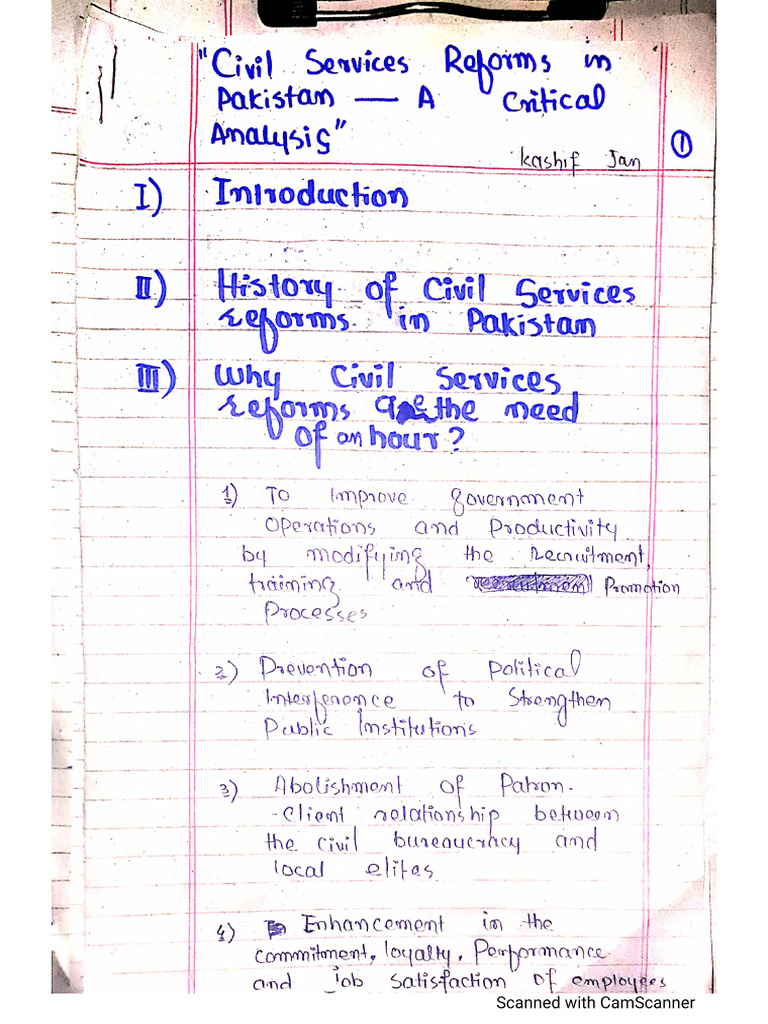 "Civil Services Reforms in
Pakistan — A Critical
Analysis"
Kashif Jan
1
I) Introduction
II) History of Civil Services
reforms in Pakistan
III) Why Civil Services
reforms are the need
of an hour?
1) To Improve Government
Operations and Productivity
by modifying the recruitment,
training and Promotion
Processes
2) Prevention of Political
Interference to Strengthen
Public Institutions
3) Abolishment of Patron-
-Client relationship between
the civil bureaucracy and
local elites
4) Enhancement in the
commitment, loyalty, Performance
and job satisfaction of employees
Scanned with CamScanner